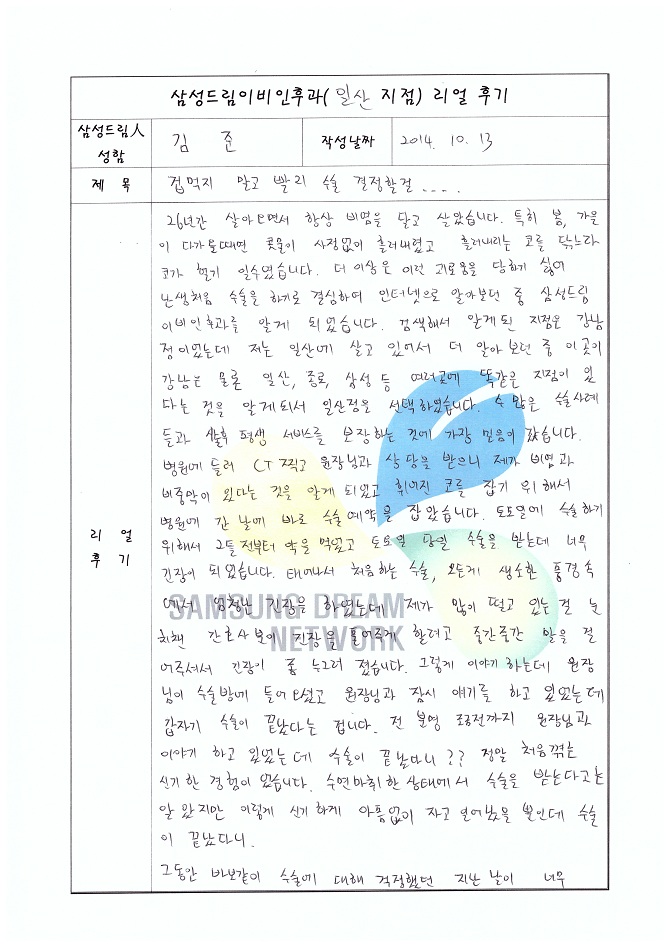 삼성드림이비인후과( 일산 지점) 리얼 후기
삼성드림人 성함
김 준
작성날짜
2014. 10. 13
제 목
겁먹지 말고 빨리 수술 결정할걸 ....
리 얼 후 기
26년간 살아오면서 항상 비염을 달고 살았습니다. 특히 봄, 가을
이 다가올때면 콧물이 사정없이 흘러내렸고 흘러내리는 코를 닦느라
코가 헐기 일수였습니다. 더 이상은 이런 괴로움을 당하기 싫어
난생처음 수술을 하기로 결심하여 인터넷으로 알아보던 중 삼성드림
이비인후과를 알게 되었습니다. 검색해서 알게된 지점은 강남
점이었는데 저는 일산에 살고 있어서 더 알아 보던 중 이곳이
강남은 물론 일산, 종로, 삼성 등 여러곳에 똑같은 지점이 있
다는 것을 알게되서 일산점을 선택하였습니다. 수 많은 수술사례
들과 사후 평생 서비스를 보장하는 것에 가장 믿음이 갔습니다.
병원에 들러 CT 찍고 원장님과 상담을 받으니 제가 비염과
비중막이 있다는 것을 알게 되었고 휘어진 코를 잡기 위해서
병원에 간 날에 바로 수술예약을 잡았습니다. 토요일에 수술하기
위해서 그틀전부터 약을 먹었고 토요일 당일 수술을 받는데 너무
긴장이 되었습니다. 태어나서 처음하는 수술, 모든게 생소한 풍경속
에서 엄청난 긴장을 하였는데 제가 많이 떨고 있는걸 눈
치챈 간호사분이 긴장을 풀어주게 할려고 중간중간 말을 걸
어주셔서 긴장이 좀 누그러 졌습니다. 그렇게 이야기 하는데 원장
님이 수술방에 들어오셨고 원장님과 잠시 얘기를 하고 있었는데
갑자기 수술이 끝났다는 겁니다. 전 분명 조금전까지 원장님과
이야기 하고 있었는데 수술이 끝났다니?? 정말 처음겪는
신기한 경험이었습니다. 수면마취한 상태에서 수술을 받는다고는
알았지만 이렇게 신기하게 아픔없이 자고 일어났을 뿐인데 수술
이 끝났다니.
그동안 바보같이 수술에 대해 걱정했던 지난 날이 너무
SAMSUNG DREAM
NETWORK